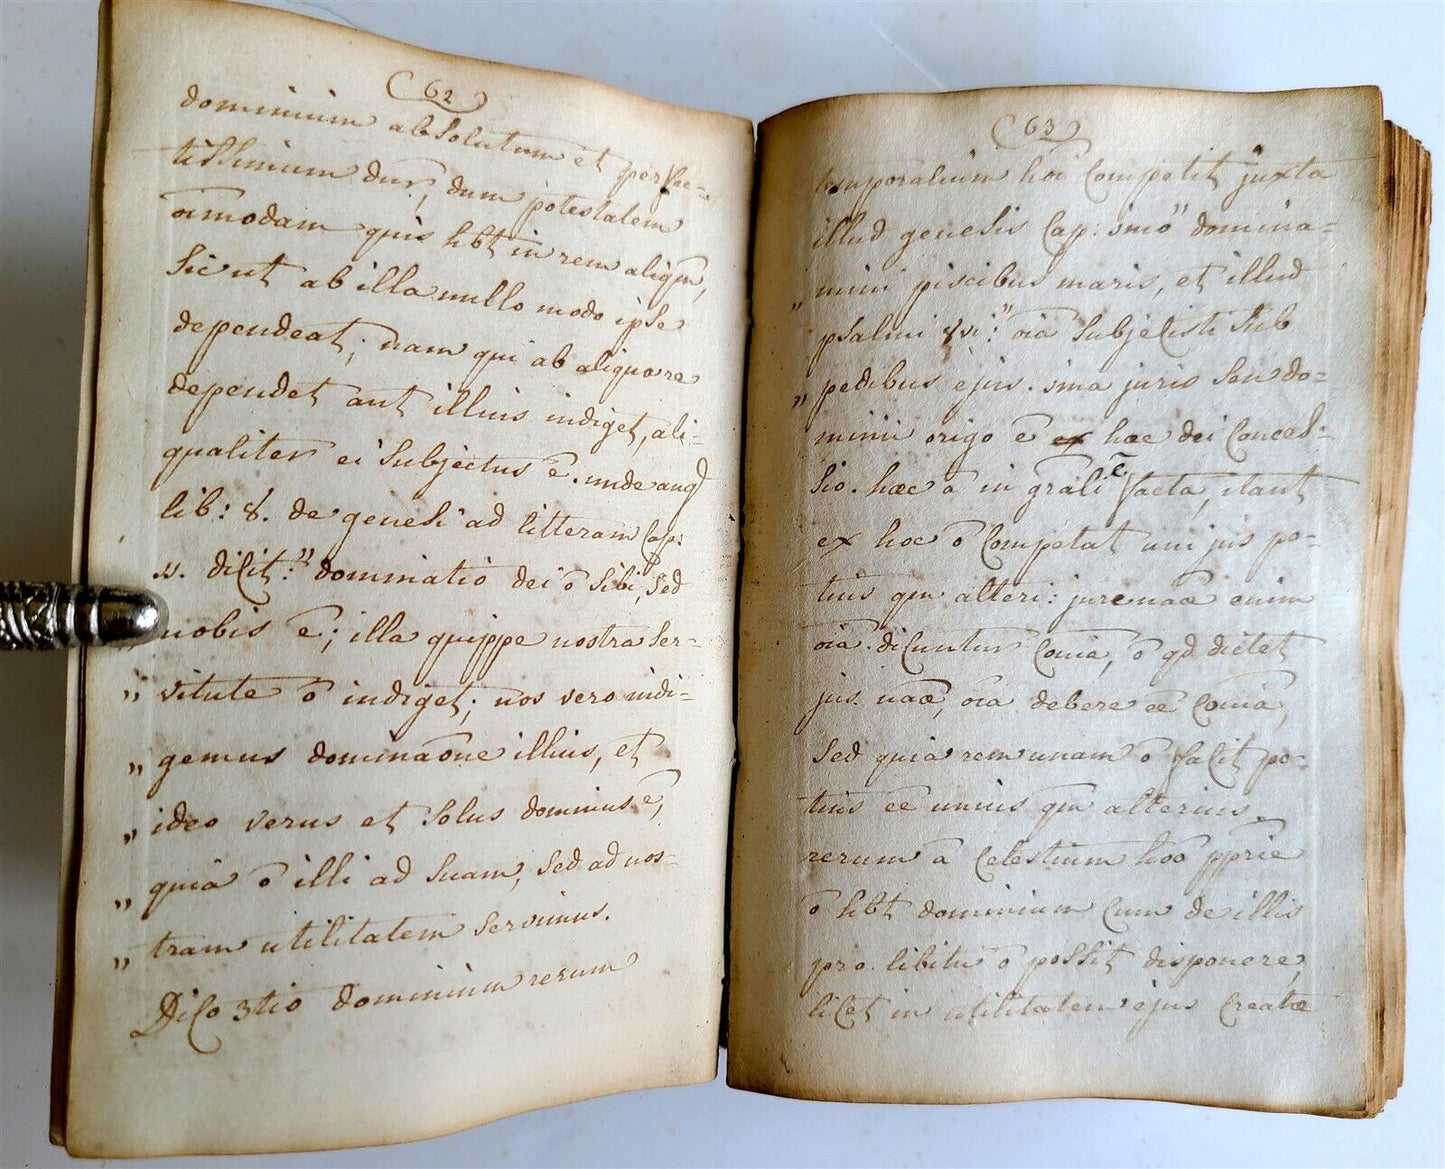 (62)
dominium absolutum et perfec=
tissimum dūr, dum potestatem
oīmodam quis hbt in rem aliqm̄,
sic ut ab illa nullo modo ipse
dependeat; nam qui ab aliqua re
dependet aut illius indiget, ali=
qualiter ei subjectus ē. unde aug
lib: 8. de genesi ad litteram Cap:
11. dicit: " dominatio dei ō sibi, sed
nobis ē; illa quippe nostra ser=
" vitute ō indiget; nos vero indi=
" gemus dominaōne illius, et
" ideo verus et solus dominus ē,
" quia ō illi ad suam, sed ad nos=
" tram utilitatem servimus.
Dico 3tio dominium rerum
(63)
temporalium hoī Competit juxta
illud genesis Cap: imō " domina=
" mini piscibus maris, et illud
psalmi 8vi: " oīa subjecisti sub
" pedibus ejus. ima juris seu do=
minii origo ē hæc dei Conces=
sio. hæc ā in grāli ē facta, itaut
ex hoc ō Competat uni jus po=
tius qm alteri: jure naæ enim
oīa dicuntur Coīnia, ō qd dictet
jus naæ, oīa debere eē Coīnia,
sed quia rem unam ō facit po=
tius eē unius qm alterius.
rerum ā Celestium hoō pprie
ō hbt dominium Cum de illis
pro libitu ō possit disponere,
licet in utilitatem ejus Creatæ